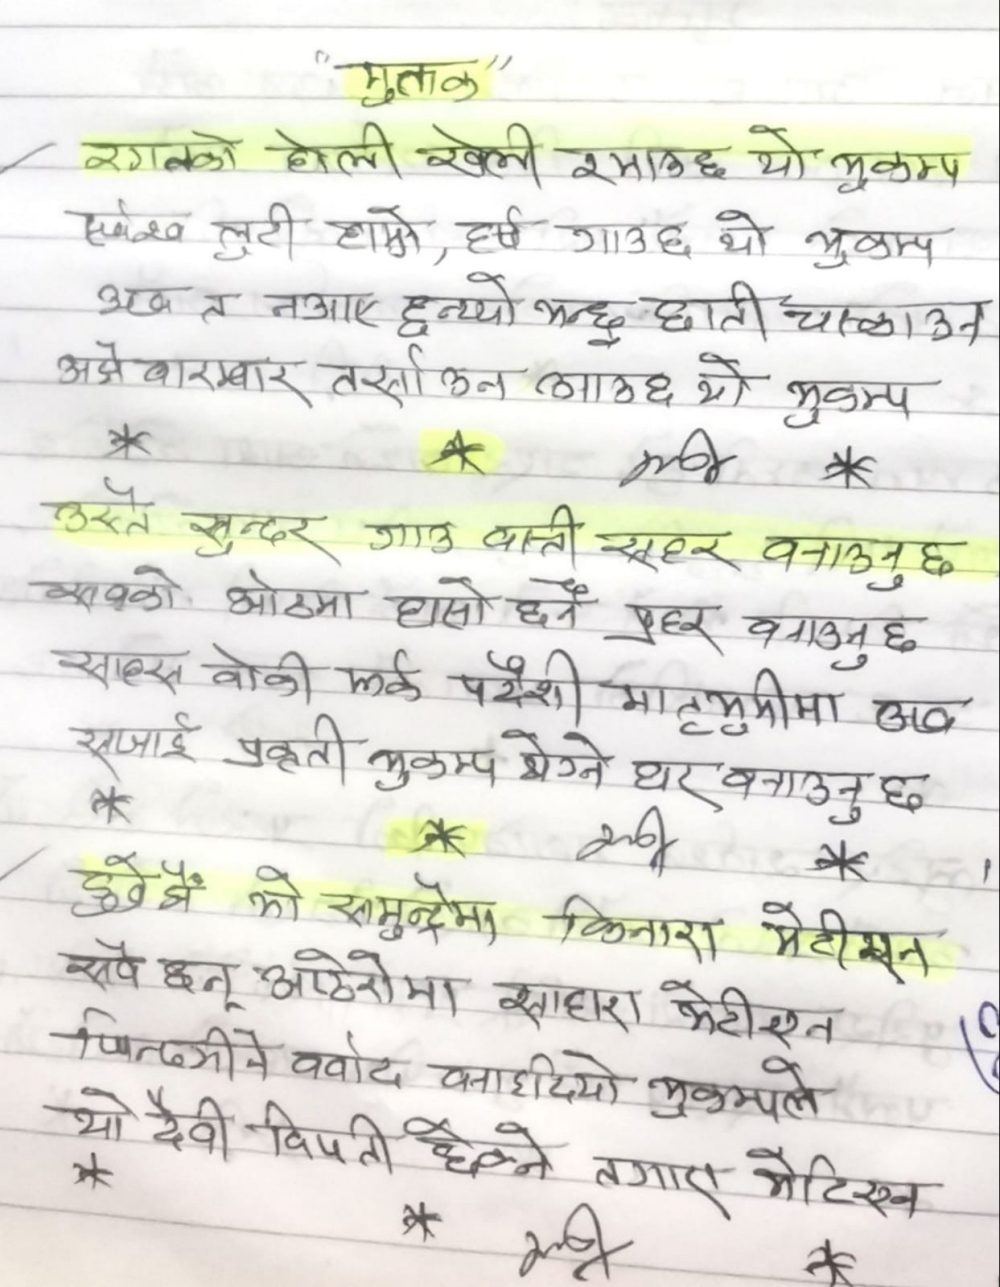 "मुक्तक"
रगतको होली खेली रमाउछ यो भुकम्प
सर्वश्व लुटी हाम्रो, हर्ष गाउछ यो भुकम्प
अब त नआए हुन्थ्यो भन्छु छाती चर्काउन
अझै बारम्बार तर्साउन आउछ यो भुकम्प
* * *
उस्तै सुन्दर गाउ वस्ती सहर बनाउनु छ
सबको ओठमा हासो छर्ने प्रहर बनाउनु छ
साहस बोकी फर्क परदेशी मातृभुमीमा अब
सजाई प्रकृती भुकम्प थेग्ने घर बनाउनु छ
* * *
को समुन्द्रमा किनारा भेटीएन
सबै छन् अप्ठेरोमा साहारा भेटीएन
जिन्दगीनै बर्बाद बनाइदियो भुकम्पले
यो दैवी विपती छेक्ने तगारा भेटिएन
* * *